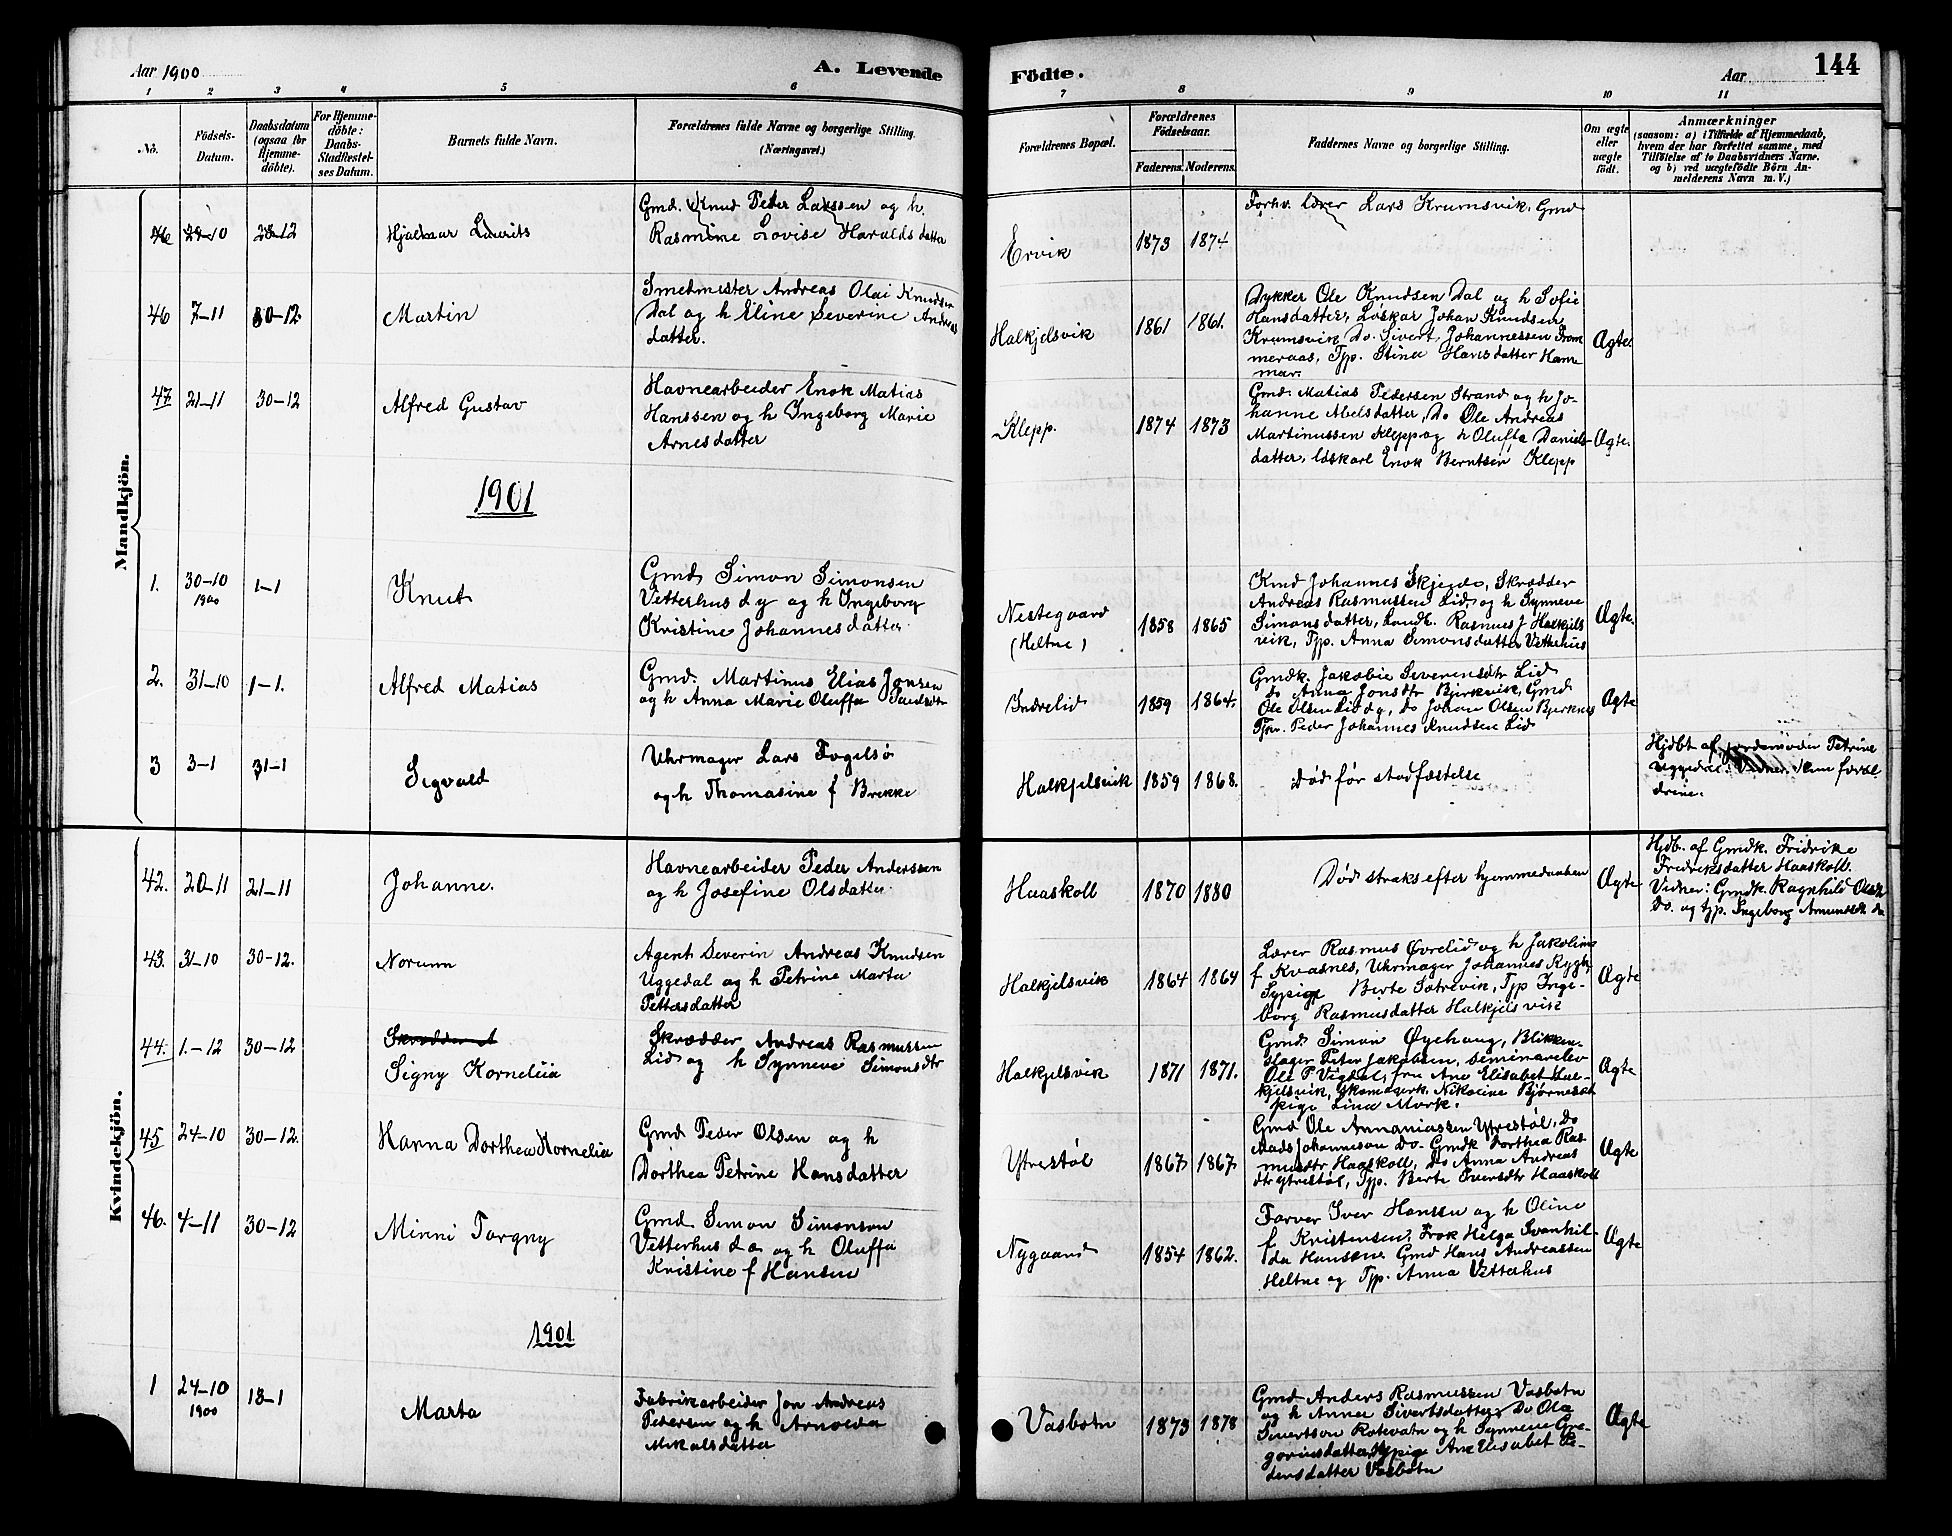 Aar 1900
A. Levende
Födte.
Aar
144
1
2
3
4
5
6
7
8
9
10
11
No.
Födsels-
Datum.
Daabsdatum
(ogsaa for
Hjemme-
döbte).
For Hjemme-
döbte:
Daabs-
Stadfæstel-
ses Datum.
Barnets fulde Navn.
Forældrenes fulde Navne og borgerlige Stilling.
(Næringsvei.)
Forældrenes Bopæl.
Forældrenes
Födselsaar.
Faderens.
Moderens.
Faddernes Navne og borgerlige Stilling.
Om ægte
eller
uægte
födt.
Anmærkninger
(saasom: a) i Tilfælde af Hjemmedaab,
hvem der har forrettet samme, med
Tilföielse af to Daabsvidners Navne.
og b) ved uægtefödte Börn An-
melderens Navn m. V.)
Mandkjön.
28-12
Hjalmar Laurits
Gmd. Knud Peter Larssen og h.
Rasmine Lovise Haralds datter
Ervik
1873
1874
Forhv. lærer Lars Krumsvik, Gmd
46
7-11
30-12
Martin
Smedmester Andreas Olai Knudsen
Dal og h Eline Severine Andreas
datter.
Halkjelsvik
1861
1861.
Dykker Ole Knudsen Dal og h Sofie
Hansdatter, Løskar Johan Knudsen
Krumsvik, Do. Sivert Johannessen From
meraas, Tjp. Stina Hansdatter Ham
mar.
Ægte
47
21-11
30-12
Alfred Gustav
Havnearbeider Enok Matias
Hanssen og h Ingeborg Marie
Arnesdatter
Klepp.
1874
1873
Gmd. Matias Pedersen Strand og h Jo-
hanne Abelsdatter, Do Ole Andreas
Martinussen Klepp og h Oluffa Daniels-
datter, løskarl Enok Berntsen Klepp
Ægte.
1901
1.
30-10
1900
1-1
Knut
Gmd. Simon Simonsen
Vetterhus d y og h Ingeborg
Kristine Johannesdatter
Nestegaard
(Heltne)
1858
1865
Kmd Johannes Skjeide, Skrædder
Andreas Rasmussen Lid og h Synneve
Simonsdatter, Landh. Rasmus J Halkjels
vik, Tjp. Anna Simonsdatter Vetterhus
Ægte.
2.
31-10
1-1.
Alfred Matias
Gmd. Martinus Elias Jonsen
og h Anna Marie Oluffa
Indrelid
1859
1864.
Gmdk. Jakobie Severensdtr Lid
do Anna Jonsdtr Bjerkvik, Gmd
Ole Olsen Lid dy, do Johan Olsen Bjerknes
Tjp. Peder Johannes Knudsen Lid
Ægte
3
3-1
31-1
Sigvald
Uhrmager Lars Fogelsø
og h Thomasine f Brekke
Halkjelsvik
1859
1868.
Død før stadfæstelse
Hjdbt af jordemoder Petrine
Uggedal: Vidner: Dem foræl
drene.
Kvindekjön.
42.
20-11
21-11
Johanne.
Havnearbeider Peder Anderssen
og h Josefine Olsdatter
Haaskoll
1870
1880
Død straks efter hjemmedaaben
Ægte
Hjdb. af Gmdk. Fridrike
Fredriksdatter Haaskoll.
Vidner: Gmdk. Ragnhild Olsdt
Do. og tjp. Ingeborg Amundsdt. do
43.
31-10
30-12.
Norunn
Agent Severin Andreas Knudsen
Uggedal og h Petrine Marta
Pettersdatter
Halkjelsvik
1864
1864
Lærer Rasmus Øvrelid og h Jakoline
f Kvasnes, Uhrmager Johannes Rygh,
Sypige Berte Sætrevik, Tjp Inge-
borg Rasmusdatter Halkjelsvik
Ægte
44.
1.-12
30-12
Skrædder A
Signy Kornelia
Skrædder Andreas Rasmussen
Lid og h Synneve Simonsdtr
Halkjelsvik
1871
1871.
Gmd. Simon Øyehaug, Blikken-
slager Peter Jakobsen, seminarelev
Ole P Vigdal, fru Ane Elisabet Hal-
kjelsvik, Skomagerk. Nikoline Bjørnesdt
pige Lina Mork.
Ægte
45
24-10
30-12.
Hanna Dorthea Kornelia
Gmd Peder Olsen og h
Dorthea Petrine Hansdatter
Ytrestøl
1867
1867
Gmd Ole Annaniassen Ytrestøl, Do
Mads Johannessen Do. Gmdk Dorthea Ras
musdtr Haaskoll, Do Anna Andreas
dtr Ytrestøl, Tjp. Berte Iversdtr Haaskoll
Ægte
46.
4-11
30-12
Minni Torgny
Gmd Simon Simonsen
Vetterhus d æ og h Oluffa
Kristine f Hansen
Nygaard
1854
1862.
Farver Iver Hansen og h Oline
f Kristensen, Frøk Helga Svanhil-
da Hansen. Gmd Hans Andreassen
Heltne og Tjp. Anna Vetterhus
Ægte
1901
1
24-10
1900
13-1
Marta
Fabrikarbeider Jon Andreas
Pedersen og h Arnolda
Mikalsdatter
Vasbotn
1873
1878
Gmd Anders Rasmussen Vasbotn
og h Anne Sivertsdatter, Do Ole
Sivertsen Rotevatn og h Synneve Gre-
goriusdatter, Sypige Ane Elisabet Pe-
dersdatter Vasbotn
Ægte